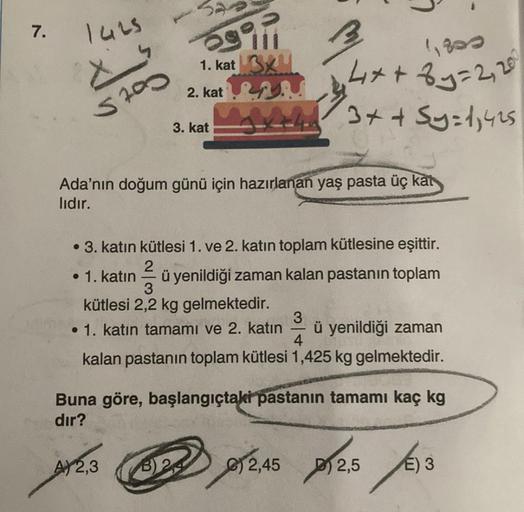 7.
1425
x 4
5700
1. kat 3x
2. kat 4y
3. kat 3x+4y
4x + 8y = 2,200
3x + 5y = 1,425
Ada'nın doğum günü için hazırlanan yaş pasta üç kat
lıdır.
• 3. katın kütlesi 1. ve 2. katın toplam kütlesine eşittir.
• 1. katın 2/3 ü yenildiği zaman kalan pastanın toplam
kütlesi 2,2 kg gelmektedir.
• 1. katın tamamı ve 2. katın 3/4 ü yenildiği zaman
kalan pastanın toplam kütlesi 1,425 kg gelmektedir.
Buna göre, başlangıçtaki pastanın tamamı kaç kg
dır?
A) 2,3 B) 2,4 C) 2,45 D) 2,5 E) 3